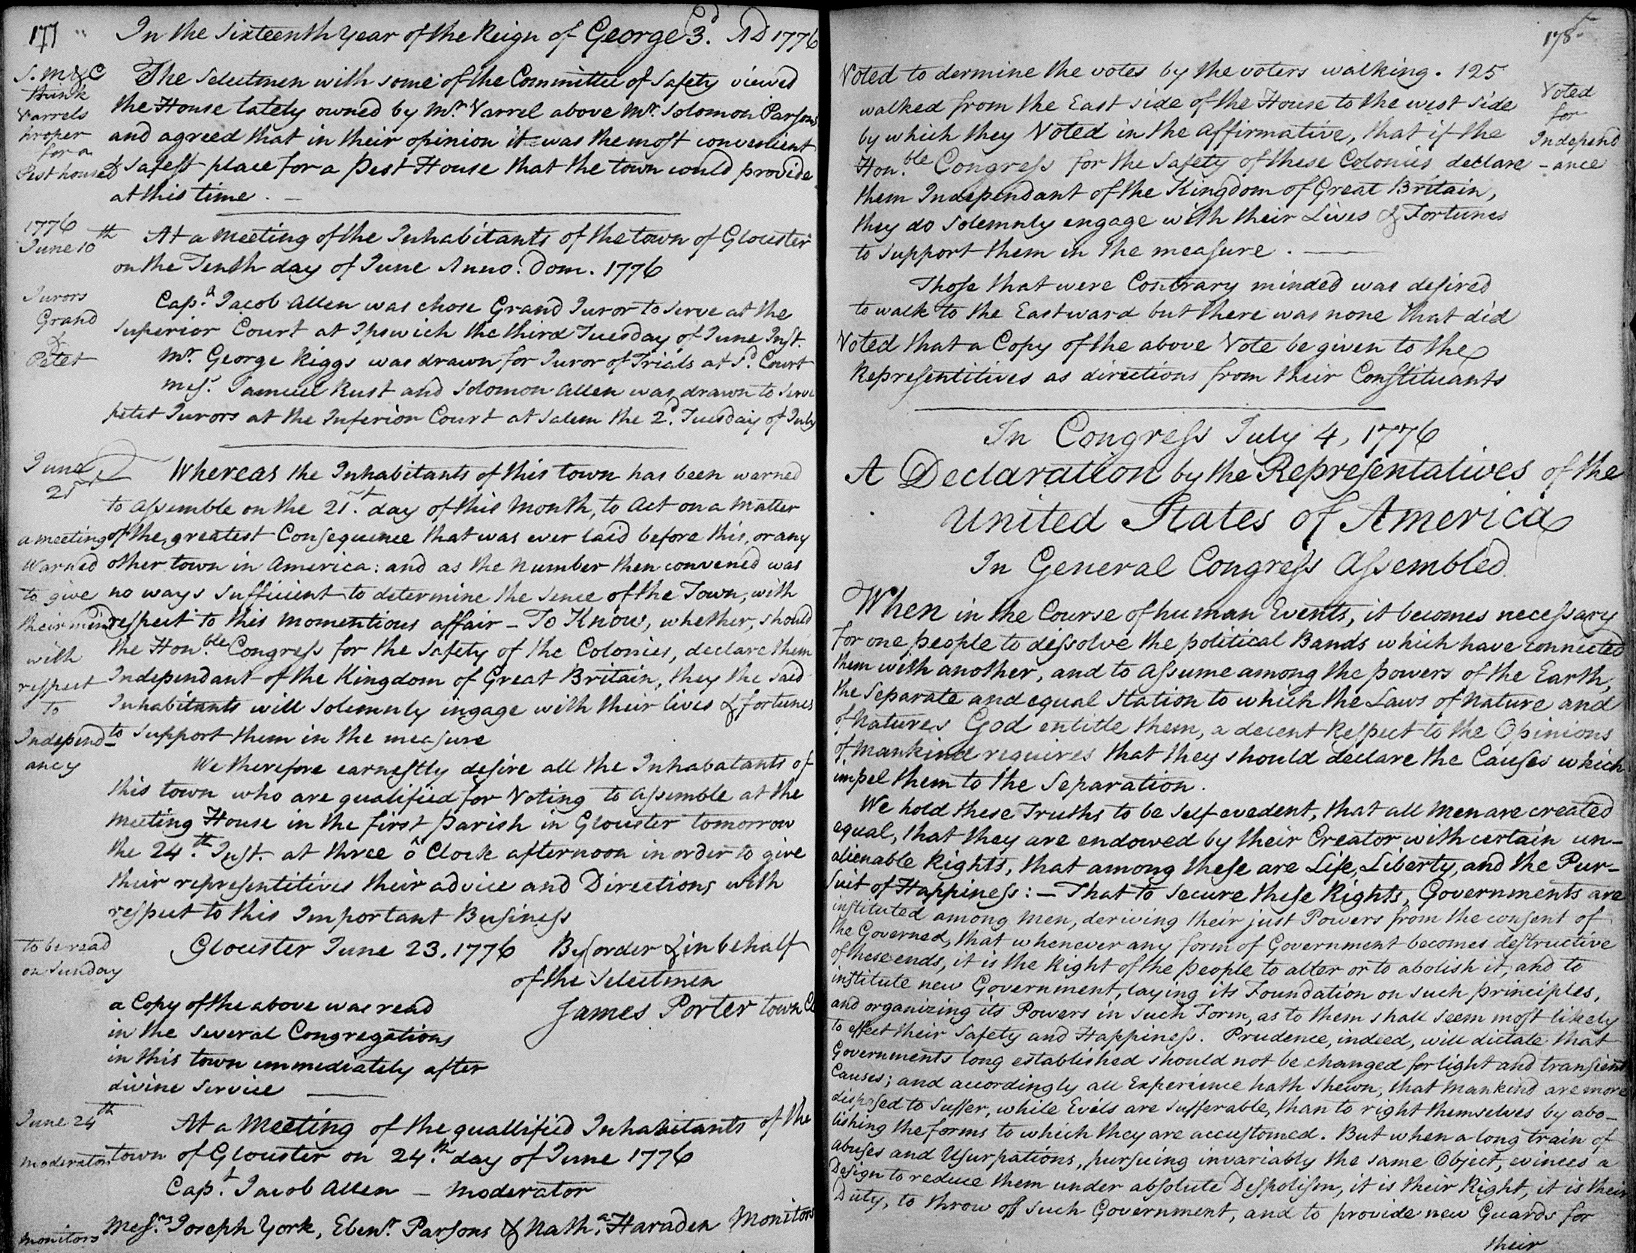 177 In the Sixteenth Year of the Reign of George 3d. AD 1776
S. M & C
think
Varrels
proper
for a
Pest house
The Selectmen with some of the Committee of Safety viewed
the House lately owned by Mr. Varrel above Mr. Solomon Parsons
and agreed that in their opinion it was the most convenient
& safest place for a Pest House that the town could provide
at this time. —
1776
June 10th
At a meeting of the Inhabitants of the town of Glocester
on the Tenth day of June Anno. Dom. 1776
Jurors
Grand
&
Petet
Capt. Jacob Allen was chose Grand Juror to serve at the
Superior Court at Ipswich the third Tuesday of June Inst.
Mr. George Riggs was drawn for Juror of Trials at sd. Court
Mes. Samuel Rust and Solomon Allen was drawn to serve
petet Jurors at the Inferior Court at Salem the 2d. Tuesday of July
June
21st
Whereas the Inhabitants of this town has been warned
to Assemble on the 21st. day of this Month, to Act on a matter
of the greatest Consequence that was ever laid before this, or any
other town in America: and as the number then convened was
no ways sufficient to determine the sence of the Town, with
respect to this momentious affair – To Know, whether, should
the Honble. Congress for the Safety of the Colonies, declare them
Independant of the Kingdom of Great Britain, they the said
Inhabitants will solemnly ingage with their lives & fortunes
to support them in the measure
a meeting
warned
to give
their mind
with
respect
to
Independ-
ancy
We therefore earnestly desire all the Inhabatants of
this town who are qualified for Voting to assemble at the
meeting House in the first parish in Glocester tomorrow
the 24th. Inst. at three o Clock afternoon in order to give
their representitives their advice and Directions with
respect to this Important Business
to be read
on Sunday
Glocester June 23, 1776 By order & in behalf
of the Selectmen
James Porter town Cl
a Copy of the above was read
in the several Congregations
in this town immediately after
divine service
June 24th
At a Meeting of the quallified Inhabitants of the
town of Glocester on 24th. day of June 1776
moderator
Capt. Jacob Allen – moderator
monitors
Messrs. Joseph York, Ebenr. Parsons & Nathl. Haraden Monitors
178
Voted to dermine the votes by the voters walking. 125
walked from the East side of the House to the west side
by which they Voted in the affirmative, that if the
Hon.ble Congress for the Safety of these Colonies declare
them Independant of the Kingdom of Great Britain,
they do solemnly engage with their Lives & Fortunes
to support them in the measure. —
Voted
for
Independ
-ance
Those that were Contrary minded was desired
to walk to the Eastward but there was none that did
Voted that a Copy of the above Vote be given to the
Representitives as directions from their Constituants
In Congress July 4, 1776
A Declaration by the Representatives of the
United States of America
In General Congress Assembled
When in the Course of human Events, it becomes necessary
for one people to dissolve the political Bands which have connected
them with another, and to assume among the powers of the Earth,
the Separate and equal Station to which the Laws of Nature and
of Natures God entitle them, a decent Respect to the Opinions
of Mankind requires that they should declare the Causes which
impel them to the Separation.
We hold these Truths to be self evedent, that all men are created
equal, that they are endowed by their Creator with certain un-
alienable Rights, that among these are Life, Liberty, and the Pur-
suit of Happiness: – That to secure these Rights, Governments are
instituted among Men, deriving their just Powers from the consent of
the Governed, that whenever any form of Government becomes destructive
of these ends, it is the Right of the people to alter or to abolish it, and to
institute new Government, laying its Foundation on such principles,
and organizing its Powers in such Form, as to them shall seem most likely
to effect their Safety and Happiness. Prudence, indeed, will dictate that
Governments long established should not be changed for light and transient
Causes; and accordingly all Experience hath shewn, that mankind are more
disposed to Suffer, while Evils are sufferable, than to right themselves by abo-
lishing the forms to which they are accustomed. But when a long train of
abuses and Usurpations, pursuing invariably the same Object, evinces a
Design to reduce them under absolute Despotism, it is their Right, it is their
Duty, to throw off such Government, and to provide new Guards for
their